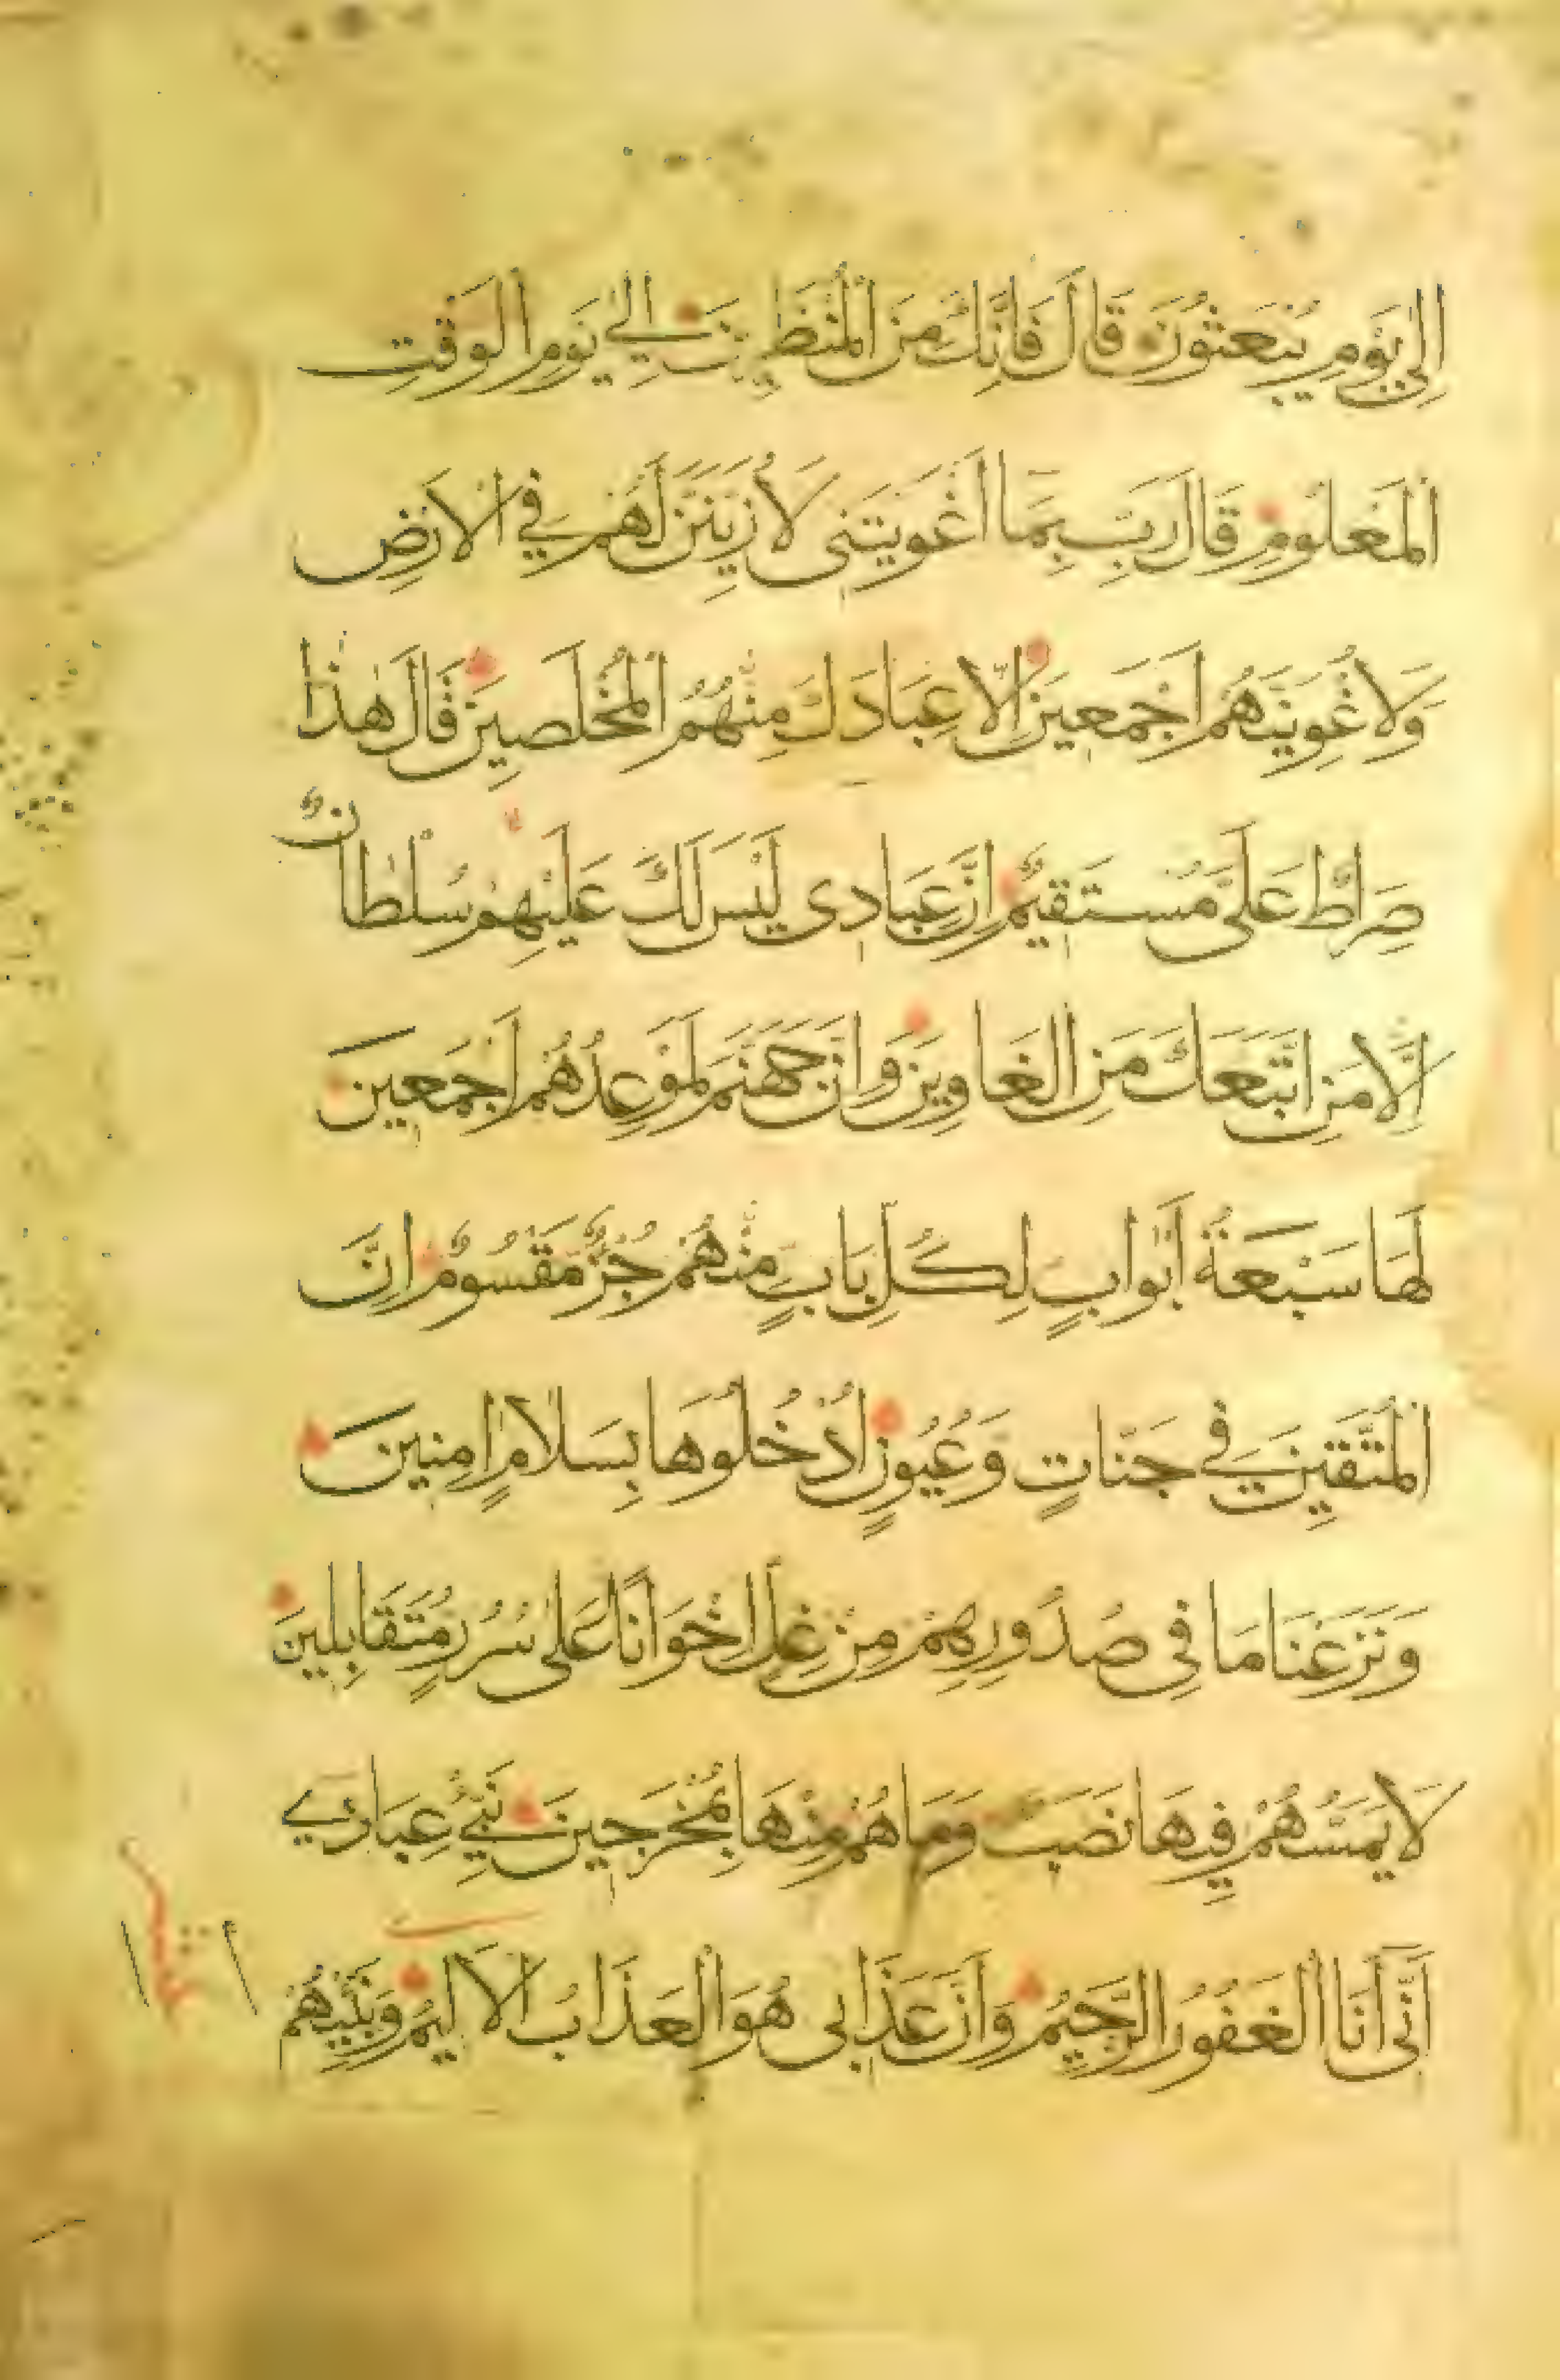 اِلٰى يَوْمِ يُبْعَثُوْنَ قَالَ فَاِنَّكَ مِنَ الْمُنْظَرِينَ اِلٰي يَوْمِ الْوَقْتِ
الْمَعْلُومِ قَالَ رَبِّ بِمَا اَغْوَيْتَنِى لَاُزَيِّنَنَّ لَهُمْ فِي الْاَرْضِ
وَلَاُغْوِيَنَّهُمْ اَجْمَعِينَ اِلَّا عِبَادَكَ مِنْهُمُ الْمُخْلَصِينَ قَالَ هٰذَا
صِرَاطٌ عَلَىَّ مُسْتَقِيمٌ اِنَّ عِبَادِى لَيْسَ لَكَ عَلَيْهِمْ سُلْطَانٌ
اِلَّا مَنِ اتَّبَعَكَ مِنَ الْغَاوِينَ وَاِنَّ جَهَنَّمَ لَمَوْعِدُهُمْ اَجْمَعِينَ
لَهَا سَبْعَةُ اَبْوَابٍ لِكُلِّ بَابٍ مِنْهُمْ جُزْءٌ مَقْسُومٌ اِنَّ
الْمُتَّقِينَ فِي جَنَّاتٍ وَعُيُونٍ اُدْخُلُوهَا بِسَلَامٍ اٰمِنِينَ
وَنَزَعْنَا مَا فِى صُدُورِهِمْ مِنْ غِلٍّ اِخْوَانًا عَلٰى سُرُرٍ مُتَقَابِلِينَ
لَا يَمَسُّهُمْ فِيهَا نَصَبٌ وَمَا هُمْ مِنْهَا بِمُخْرَجِينَ نَبِّئْ عِبَادِي
اَنِّى اَنَا الْغَفُورُ الرَّحِيمُ وَاَنَّ عَذَابِى هُوَ الْعَذَابُ الْاَلِيمُ وَنَبِّئْهُمْ